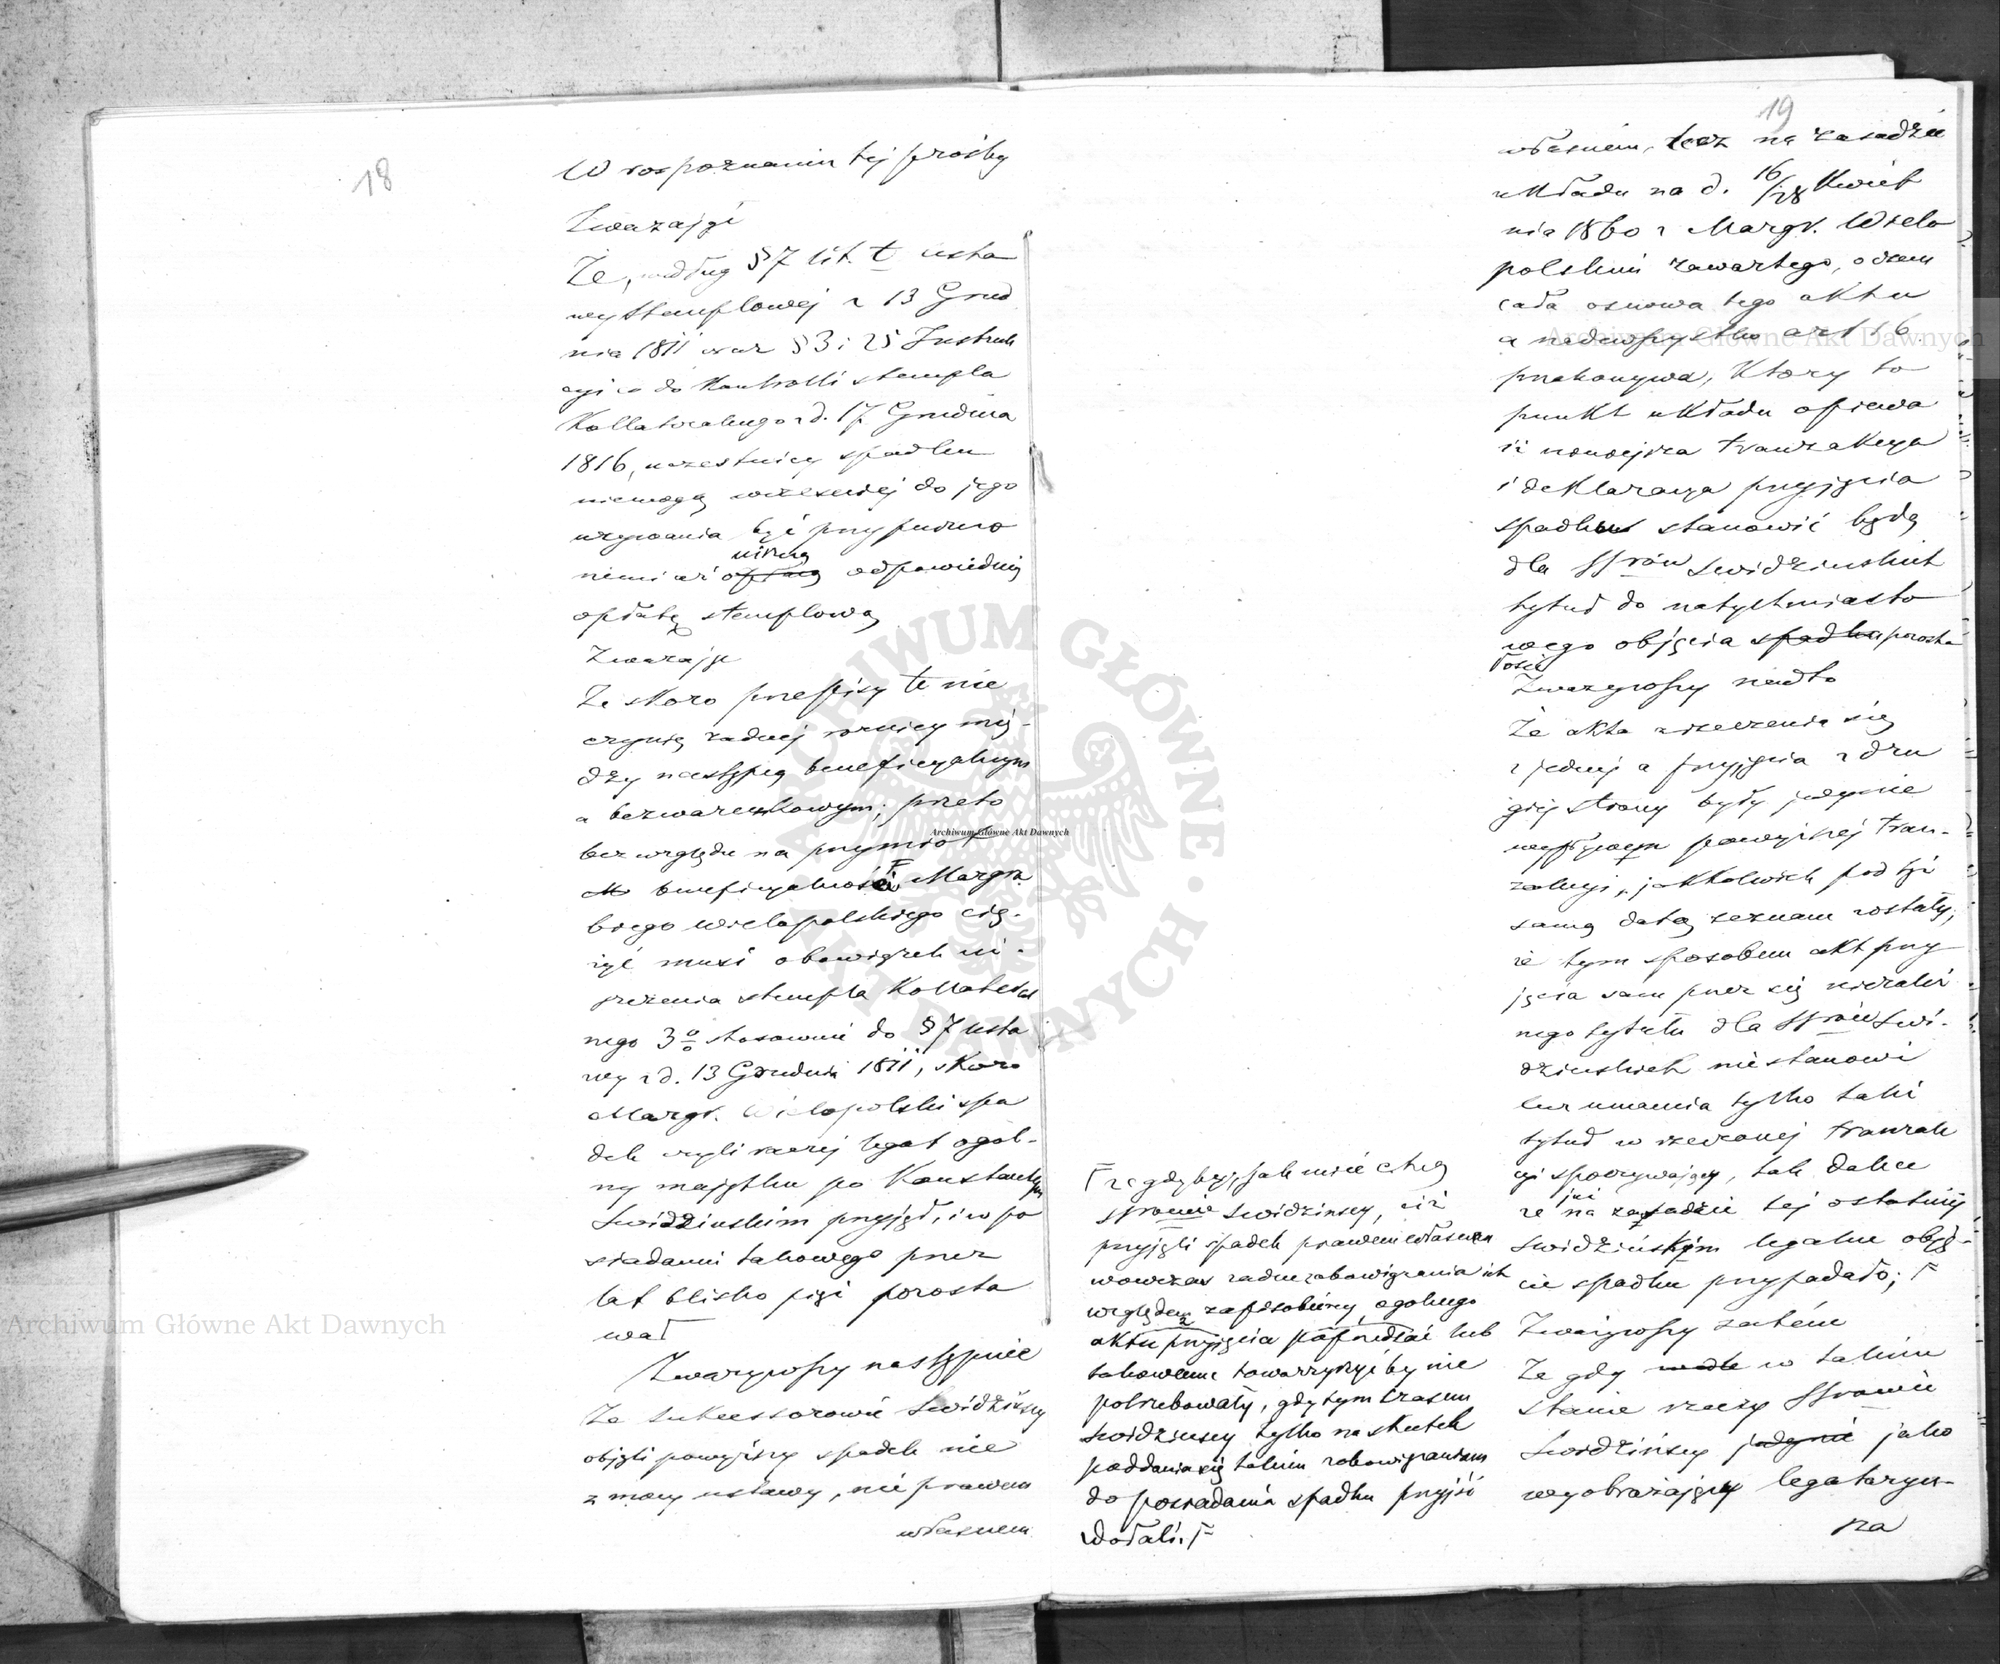 18
W rospoznaniu tej prośby
Zważając
Że, według § 7 lit. t usta
wy stemplowej z 13 Grud
nia 1811 oraz § 3 i 25 Instruk
cyi co do Kontrolli stempla
Kollateralnego z d. 17 Grudnia
1816, uczestnicy spadku
niemogą wcześniej do jego
używania być przypuszczo
nemi aż uiszczą opłacą odpowiednią
opłatę stemplową
Zważając
Że skoro przepisy te nie
czynią żadnej różnicy mię-
dzy następcą beneficyalnym
a bezwarunkowym; przeto
bez względu na przymiot
beneficyalności Margra
biego Wielopolskiego cią-
żyć musi obowiązek ui-
szczenia stempla Kollateral
nego 3% stosownie do § 7 usta
wy z d. 13 Grudnia 1811, skoro
Margr. Wielopolski spa
dek czyli raczej legat ogól-
ny majątku po Konstantym
Swidzińskim przyjął, i w po
siadaniu takowego przez
lat blisko pięć pozosta
wał
Zważywszy następnie
Że Sukcessorowie Swidzińscy
objęli powyższy spadek nie
z mocy ustawy, nie prawem
własnem
19
własnem, lecz na zasadzie
układu na d. 16/28 Kwiet
nia 1860 z Margr. Wielo
polskim zawartego, o czem
cała osnowa tego aktu
a nadewszystko art 16
przekonywa, Który to
punkt układu opiewa
iż niniejsza tranzakcya
i deklaracya przyjęcia
spadku stanowić będą
dla SSrów Swidzińskich
tytuł do natychmiasto
wego objęcia spadku pozosta
łości
Zważywszy nadto
Że akta zrzeczenia się
z jednej a przyjęcia z dru
giej strony były jedynie
wypływem powyższej tran-
zakcyi, jakkolwiek pod tąż
samą datą zeznane zostały,
że tym sposobem akt przy
jęcia sam przez się niezależ
nego tytułu dla SSrów Swi-
dzińskich nie stanowi
lecz znamia tylko taki
tytuł w rzeczonej tranzak
cyi spoczywający, tak dalece
że już na zasadzie tej ostatniej
Swidzińskim legalne obję-
cie spadku przypadało; Γ
Zważywszy zatém
Że gdy w takim
stanie rzeczy SSrowie
Swidzińscy jedynie jako
wyobrażający legataryu-
sza
Γ że gdyby, jak mieć chcą
SSrowie Swidzińscy, ciż
przyjęli spadek prawem własnem
wowczas żadne zobowiązania ich
względem zapisobiercy ogolnego
aktu przyjęcia poprzedzać lub
takowemu towarzyszyć by nie
potrzebowały, gdy tym czasem
Swidzińscy tylko na skutek
poddania się takim zobowiązaniom
do posiadania spadku przyjść
zdołali. Γ
Archiwum Główne Akt Dawnych
Archiwum Główne Akt Dawnych
Archiwum Główne Akt Dawnych
ARCHIWUM GŁÓWNE AKT DAWNYCH